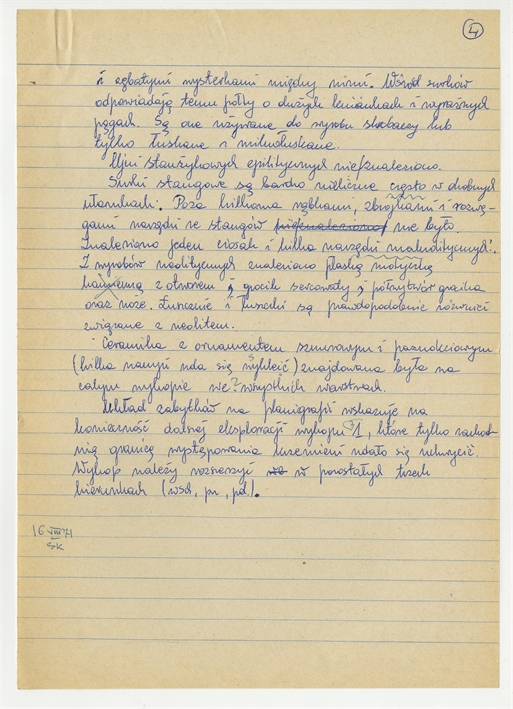 4
i zębatymi wysterkami między nimi. Wśród surków
odpowiadają temu półty o dużych keniankach i wyraźnych
pągach. Są one używane do wyrobu skrobaczy lub
tylko łuskane i mikrołuskane.
Ujni stauzykowych epilitycznych nie znaleziono.
Surki staugowe są bardzo nieliczne często w drobnych
ułamkach. Poza kilkoma rąbkami, zbrojkami i
gami narzędzi ze staugów nie było.
Znaleziono jeden ciosak i kilka narzędzi makrolitycznych.
Z wyrobów neolitycznych znaleziono płaską motyczkę
kamienną z otworem i grocik sercowaty i półwytwór grocika
oraz noże. Łuszcznie i łuszczki są prawdopodobnie również
związane z neolitem.
Ceramika z ornamentem sznurowym i paznokciowym
(kilka naczyń uda się wykleić) znajdowana była na
całym wykopie we wszystkich warstwach.
Układ zabytków na planigrafii wskazuje na
konieczność dalszej eksploracji wykopu 1, które tylko zachod-
nią granicę występowania krzemieni udało się uchwycić.
Wykop należy rozszerzyć w pozostałych trzech
kierunkach (wsch, pn, pd).
16 VIII 71
SK